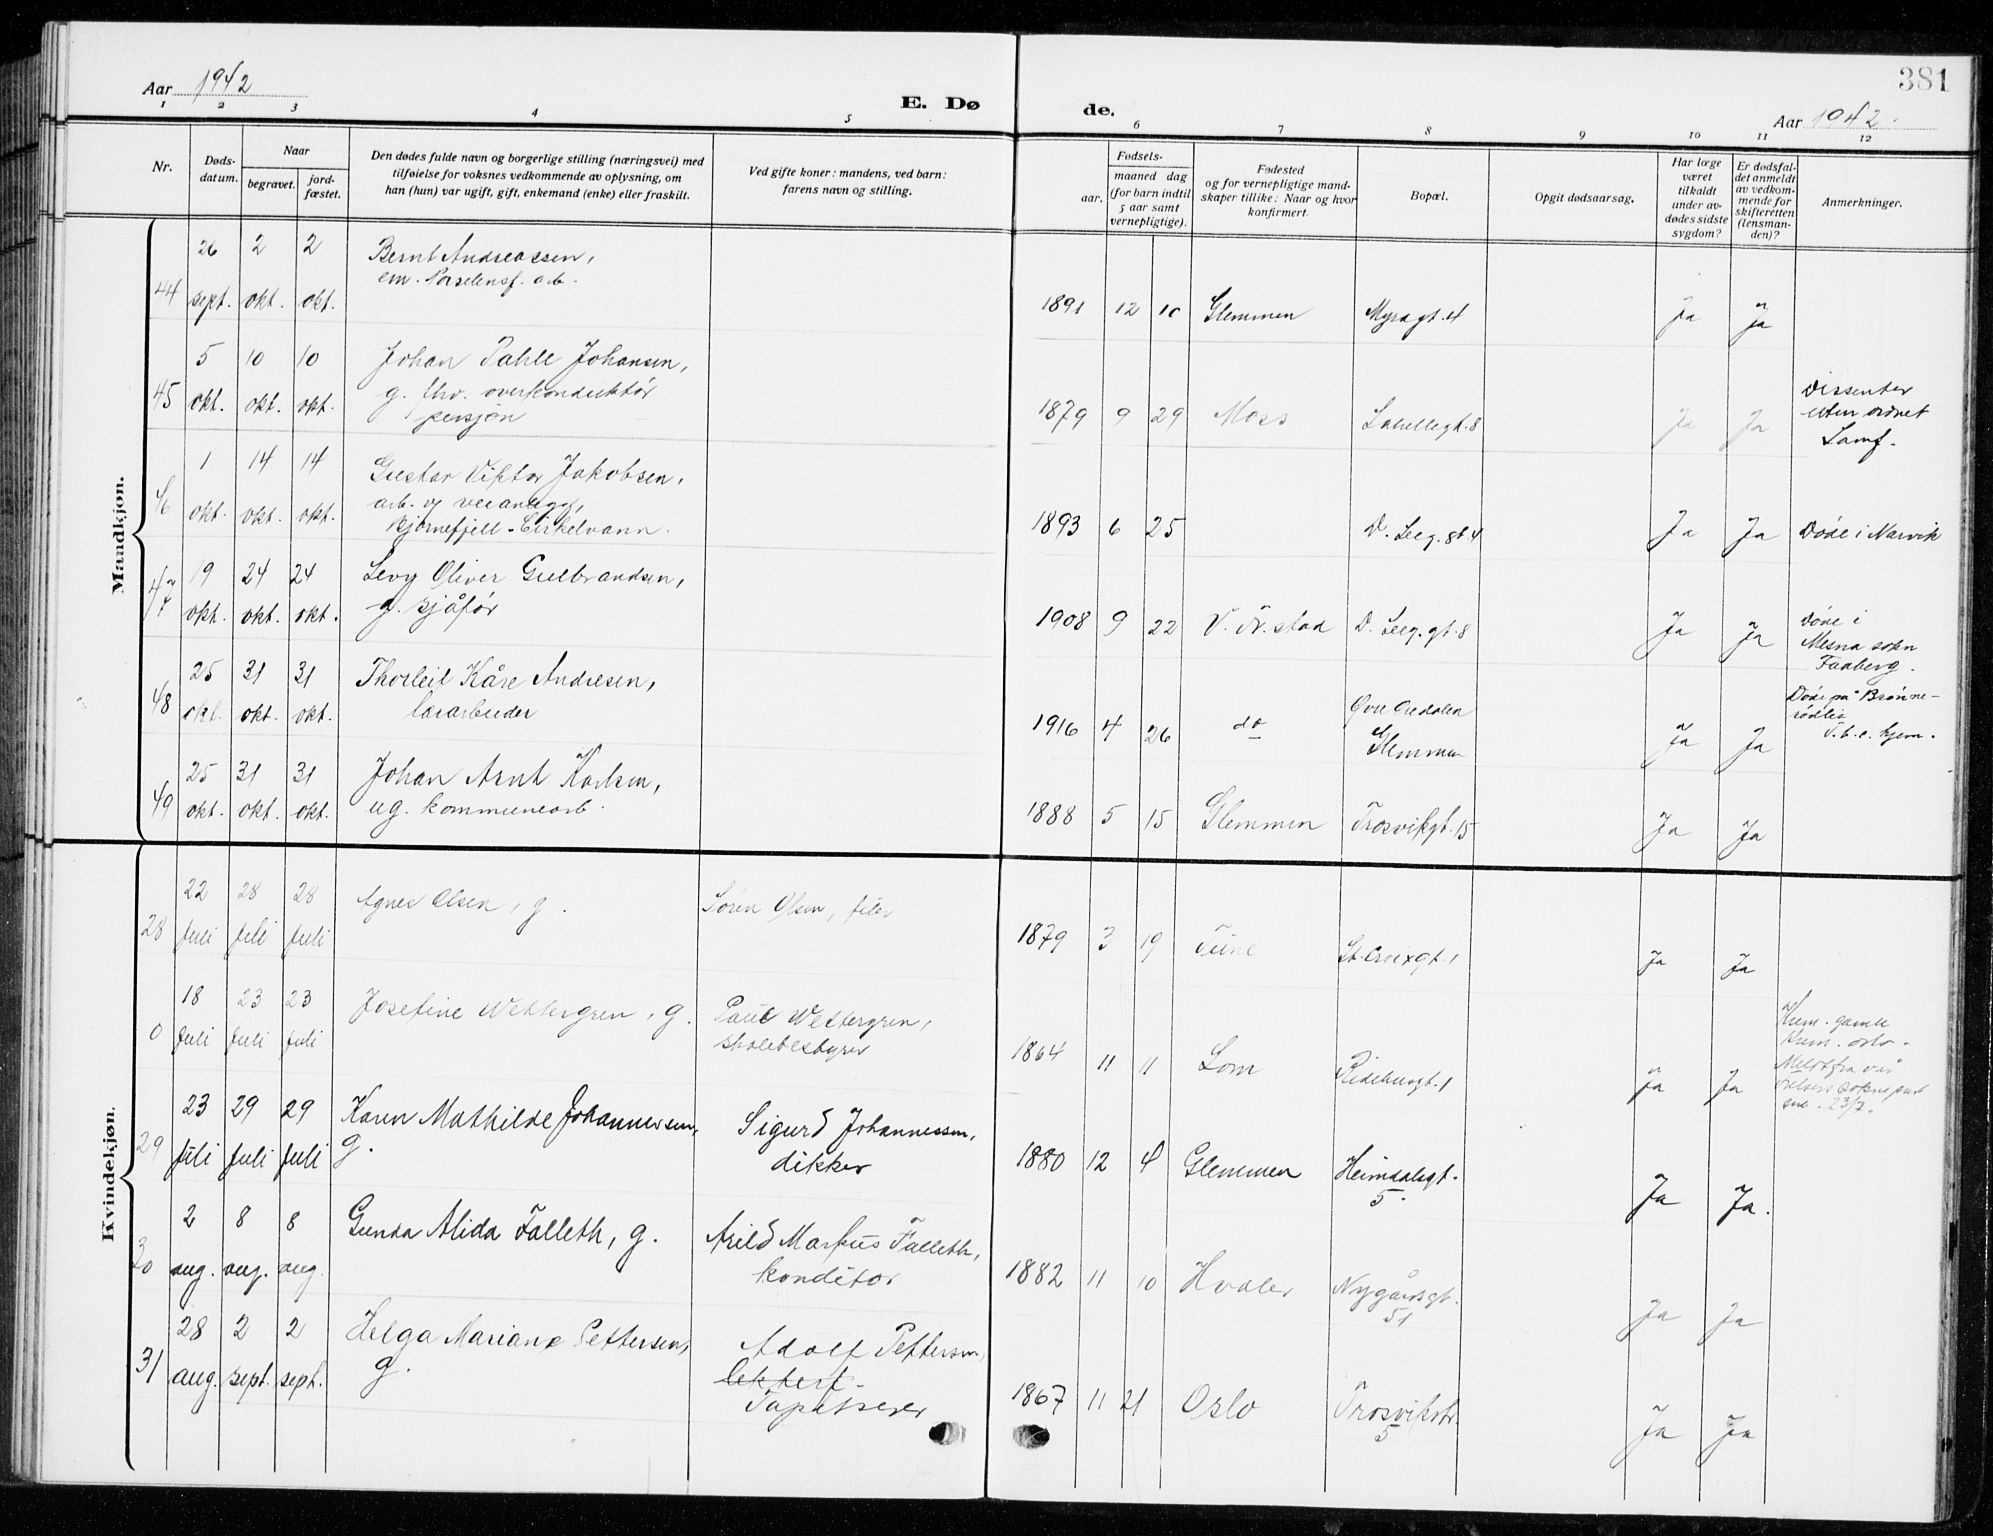 381
Aar 1942
E. Dø de.
Aar 1942.
1 2 3 4 5 6 7 8 9 10 11 12
Nr.
Døds-
datum.
Naar
begravet.
jord-
fæstet.
Den dødes fulde navn og borgerlige stilling (næringsvei) med
tilføielse for voksnes vedkommende av oplysning, om
han (hun) var ugift, gift, enkemand (enke) eller fraskilt.
Ved gifte koner: mandens, ved barn:
farens navn og stilling.
aar.
Fødsels-
maaned dag
(for barn indtil
5 aar samt
vernepligtige).
Fødested
og for vernepligtige mand-
skaper tillike: Naar og hvor
konfirmert.
Bopæl.
Opgit dødsaarsag.
Har læge
været
tilkaldt
under av-
dødes sidste
sygdom?
Er dødsfal-
det anmeldt
av vedkom-
mende for
skifteretten
(lensman-
den)?
Anmerkninger.
Mandkjøn.
26 2 2 Bernt Andreassen,
em. Porselensf. arb.
44 sept. okt. okt.
1891 12 10 Glemmen Myragt. 4 Ja Ja
5 10 10 Johan Pahle Johansen,
45 okt. okt. okt. g. overkonduktør
pensjon
1879 9 29 Moss Labellegt. 8 Ja Ja
Dissenter
uten ordnet
Samf.
1 14 14 Gustav Viktor Jakobsen,
46 okt. okt. okt. arb. v veianlegg,
Bjørnefjell - Cirkelvann.
1893 6 25 D. Leeg. gt. 4 Ja Ja Døde i Narvik
19 24 24 Levy Oliver Gulbrandsen,
47 okt. okt. okt. g. sjåfør
1908 9 22 V. Fr.stad D. Leeg. gt. 8 Ja Ja
Døde i
Mesna sokn
Faaberg.
25 31 31 Thorleif Kåre Andresen,
48 okt. okt. okt. løsarbeider
1916 4 26 do Øvre Oredalen
Glemmen Ja Ja
Døde på Brønne-
rødlia
T.b.c. hjem.
25 31 31 Johan Arnt Karlsen,
49 okt. okt. okt. ug. kommunearb.
1888 5 15 Glemmen Trosvikgt. 15 Ja Ja
Kvindekjøn.
22 28 28 Agnes Olsen, g. Søren Olsen, filer
28 juli juli juli
1879 3 19 Tune St. Croixgt. 1 Ja Ja
18 23 23 Josefine Wettergren, g. Paul Wettergren,
0 juli juli juli skolebestyrer
1864 11 11 Lom Ridehusgt. 1 Ja Ja
Krem. gamle
Krem. Oslo.
Meldt fra Vår
23/7.
23 29 29 Karen Mathilde Johannessen, Sigurd Johannessen,
29 juli juli juli g. dikker
1880 12 4 Glemmen Heimdalsgt.
5. Ja Ja.
2 8 8 Gunda Alida Falleth, g. Arild Markus Falleth,
30 aug. aug. aug. konditor
1882 11 10 Hvaler Nygårdsgt.
51 Ja Ja
28 2 2 Helga Mariane Pettersen, Adolf Pettersen,
31 aug. sept. sept. g.
Tapetserer
1867 11 21 Oslo Trosvikstr.
5 Ja Ja